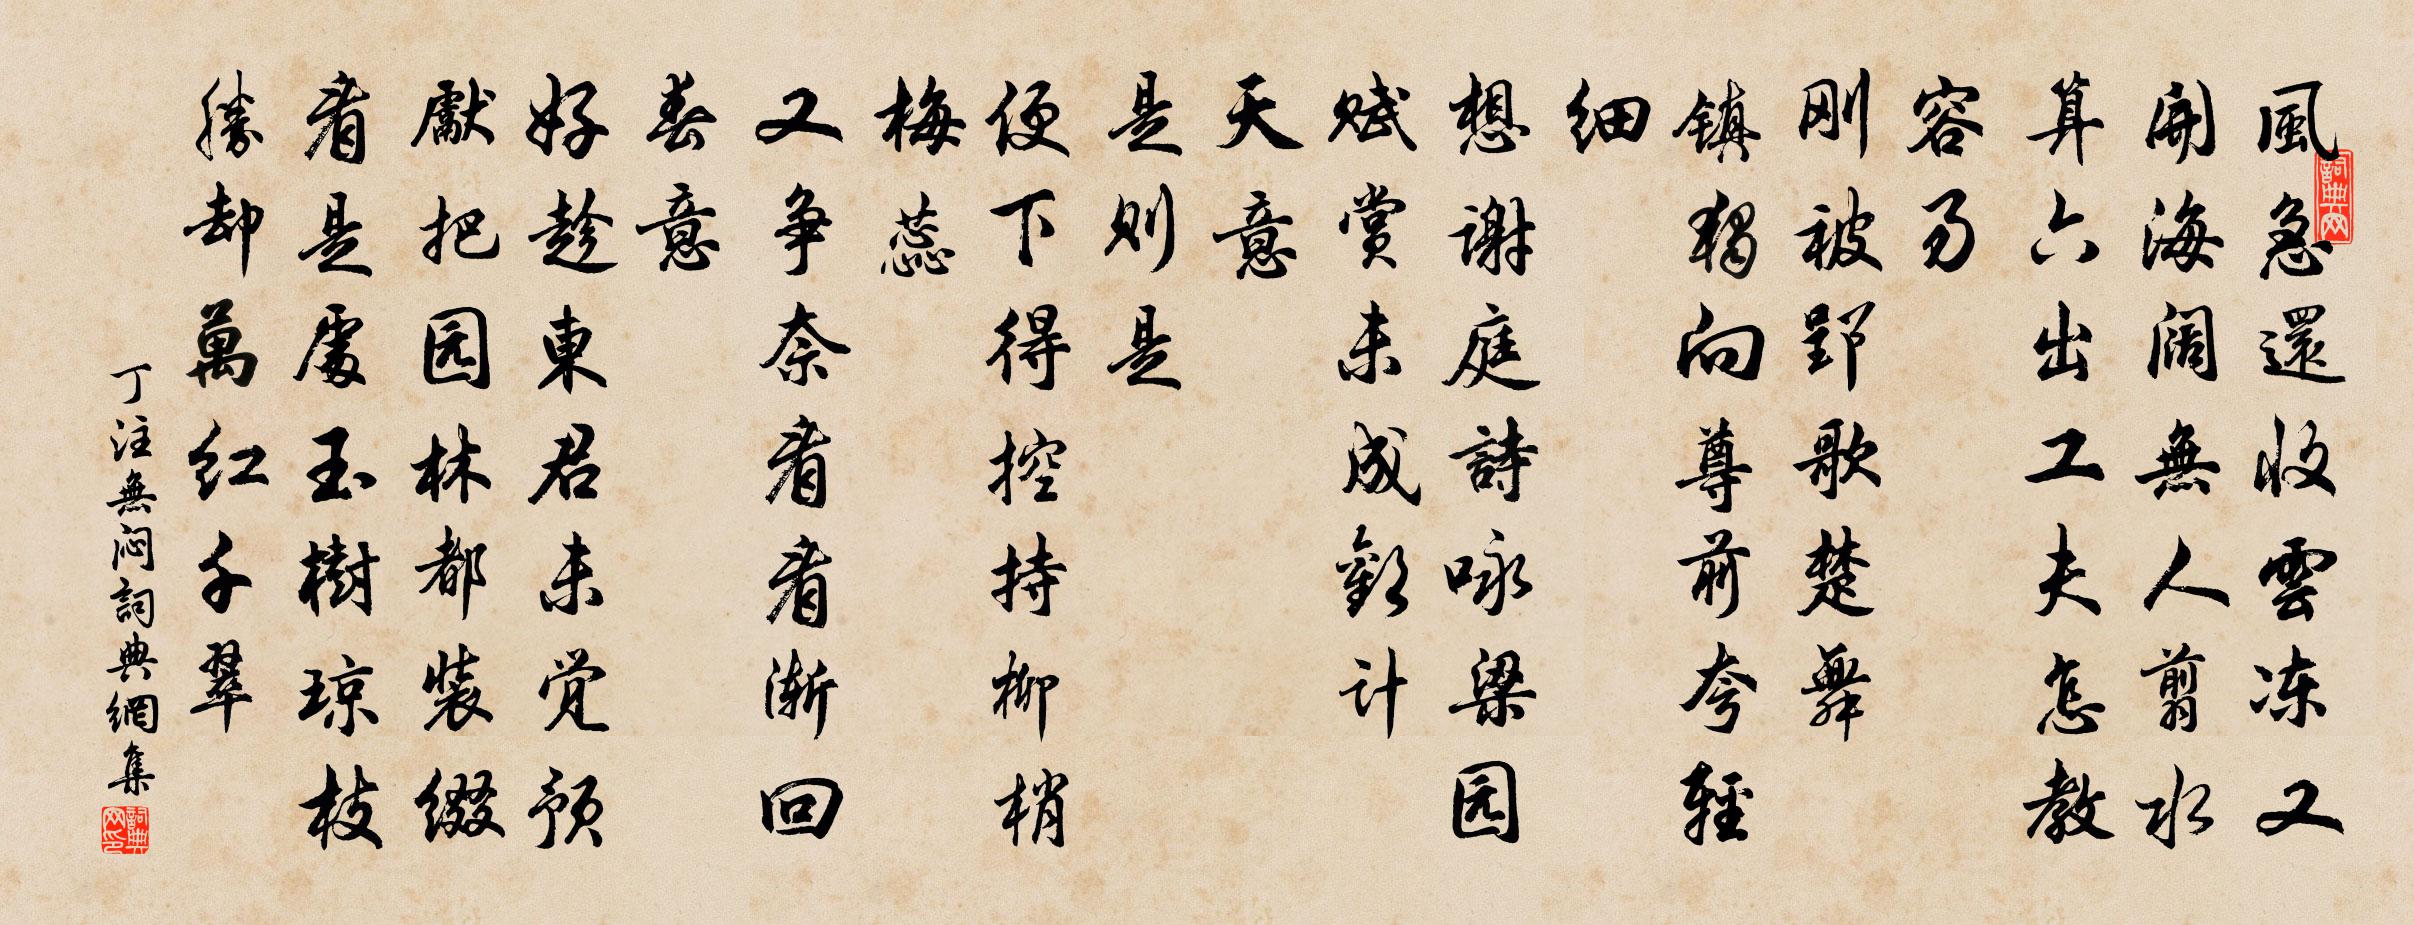 風急還收雲冻又
開海阔無人剪水
算六出工夫怎教
容易
刚被郢歌楚舞
镇獨向尊前夸輕
细
想謝庭詩咏梁园
赋赏未成歡计
天意
是则是
便下得控持柳梢
梅蕊
又争奈看看渐回
春意
好趁東君未觉预
獻把园林都装缀
看是處玉樹琼枝
勝却萬红千翠
丁注無闷詞典網集
詞典网
詞典网印